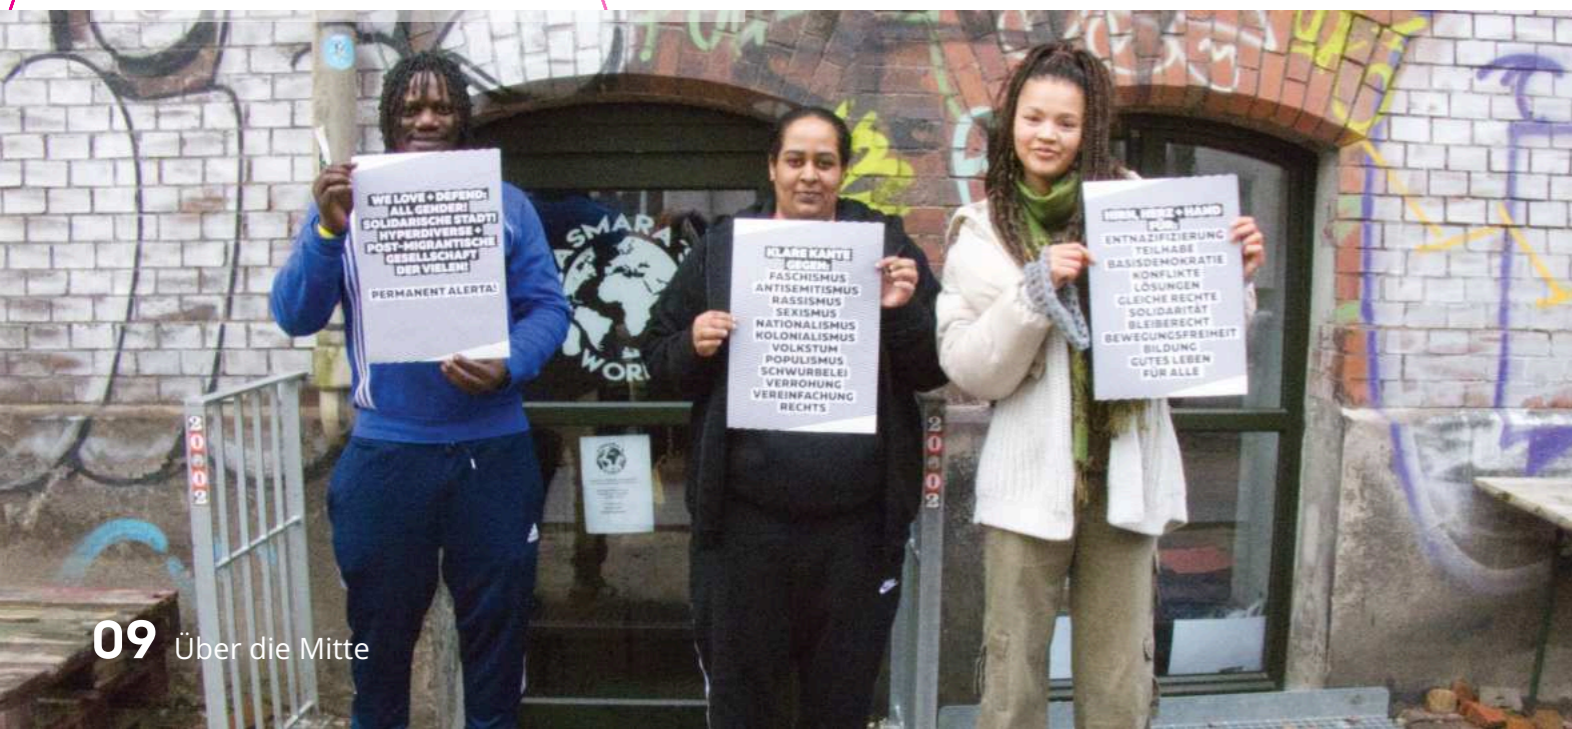 WE LOVE + DEFEND:
ALL GENDER!
SOLIDARISCHE STADT!
HYPERDIVERSE +
POST-MIGRANTISCHE
GESELLSCHAFT
DER VIELEN!
PERMANENT ALERTA!
ASMARA'S
WORL
KLARE KANTE
GEGEN:
FASCHISMUS
ANTISEMITISMUS
RASSISMUS
SEXISMUS
NATIONALISMUS
KOLONIALISMUS
VOLKSTUM
POPULISMUS
SCHWURBELEI
VERROHUNG
VEREINFACHUNG
RECHTS
HIRN, HERZ + HAND
FÜR:
ENTNAZIFIZIERUNG
TEILHABE
BASISDEMOKRATIE
KONFLIKTE
LÖSUNGEN
GLEICHE RECHTE
SOLIDARITÄT
BLEIBERECHT
BEWEGUNGSFREIHEIT
BILDUNG
GUTES LEBEN
FÜR ALLE
09 Über die Mitte